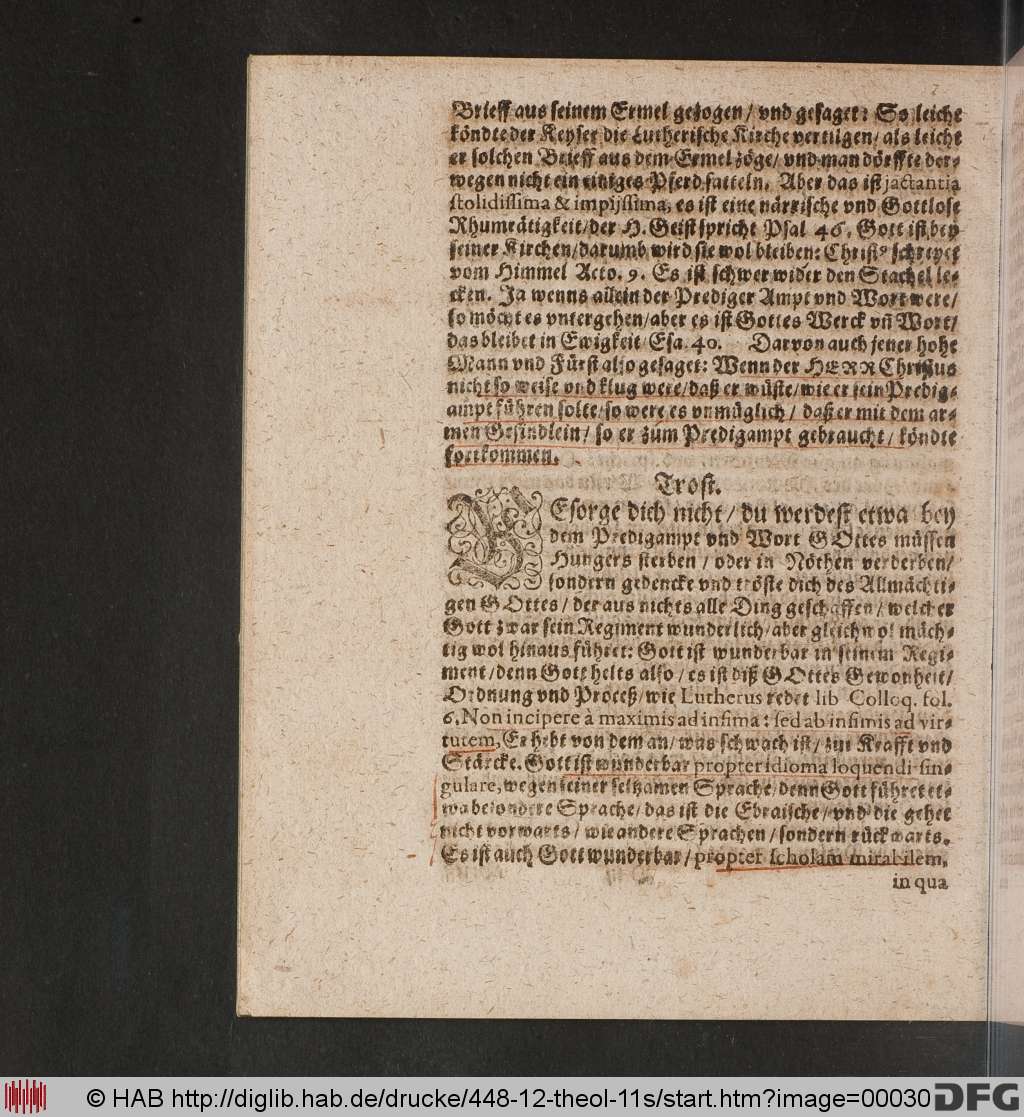 Brieff aus seinem Ermel gezogen / vnd gesaget: So leicht
köndte der Keyser die Lutherische Kirche vertilgen / als leicht
er solchen Brieff aus dem Ermel zöge / vnd man dörffte der-
wegen nicht ein einiges Pferd satteln. Aber das ist jactantia
stolidissima & impijssima, es ist eine närrische vnd Gottlose
Rhumrätigkeit / der H. Geist spricht Psal 46. Gott ist bey
seiner Kirchen / darumb wird sie wol bleiben: Christꝰ schreyet
vom Himmel Acto. 9. Es ist schwer wider den Stachel le-
cken. Ja wenns allein der Prediger Ampt vnd Wort were /
so möcht es vntergehen / aber es ist Gottes Werck vñ Wort /
das bleibet in Ewigkeit Esa. 40. Darvon auch jener hohe
Mann vnd Fürst also gesaget: Wenn der HERR Christus
nicht so weise vnd klug were / daß er wüste / wie er sein Predig-
ampt führen solte / so were es vnmüglich / daß er mit dem ar-
men Gesindlein / so er zum Predigampt gebraucht / köndte
fortkommen.
Trost.
BEsorge dich nicht / du werdest etwa bey
dem Predigampt vnd Wort GOttes müssen
Hungers sterben / oder in Nöthen verderben /
sondern gedencke vnd tröste dich des Allmächti-
gen GOttes / der aus nichts alle Ding geschaffen / welcher
Gott zwar sein Regiment wunderlich / aber gleichwol mäch-
tig wol hinaus führet: Gott ist wunderbar in seinem Regi-
ment / denn Gott helts also / es ist diß GOttes Gewonheit /
Ordnung vnd Proceß / wie Lutherus redet lib Colloq. fol.
6. Non incipere à maximis ad infima: sed ab infimis ad vir-
tutem, Er hebt von dem an / was schwach ist / zur Krafft vnd
Stärcke. Gott ist wunderbar propter idioma loquendi sin-
gulare, wegen seiner seltzamen Sprache / denn Gott führet et-
wa besondere Sprache / das ist die Ebraische / vnd die gehet
nicht vorwarts / wie andere Sprachen / sondern rückwarts.
Es ist auch Gott wunderbar / propter scholam mirabilem,
in qua
© HAB http://diglib.hab.de/drucke/448-12-theol-11s/start.htm?image=00030 DFG